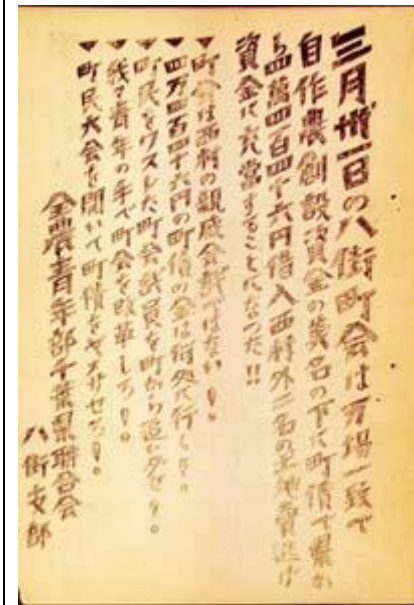 三月卅一日の八街町会は万場一致で
自作農創設資金の美名の下に町債で県か
ら四萬四百四十六円借入西村外二名の土地買逃げ
資金に充当することになつた!!
▼町会は西村の親戚会議ではない!。
▼四万四百四十六円の町債の金は何処に行く!。
▼町民をワスレた町会議員を町から追い出せ!。
▼我々青年の手で町会を改革しろ!。
▼町民大会を開いて町債をヤメサセろ!。
全農青年部千葉県聯合会
八街支部